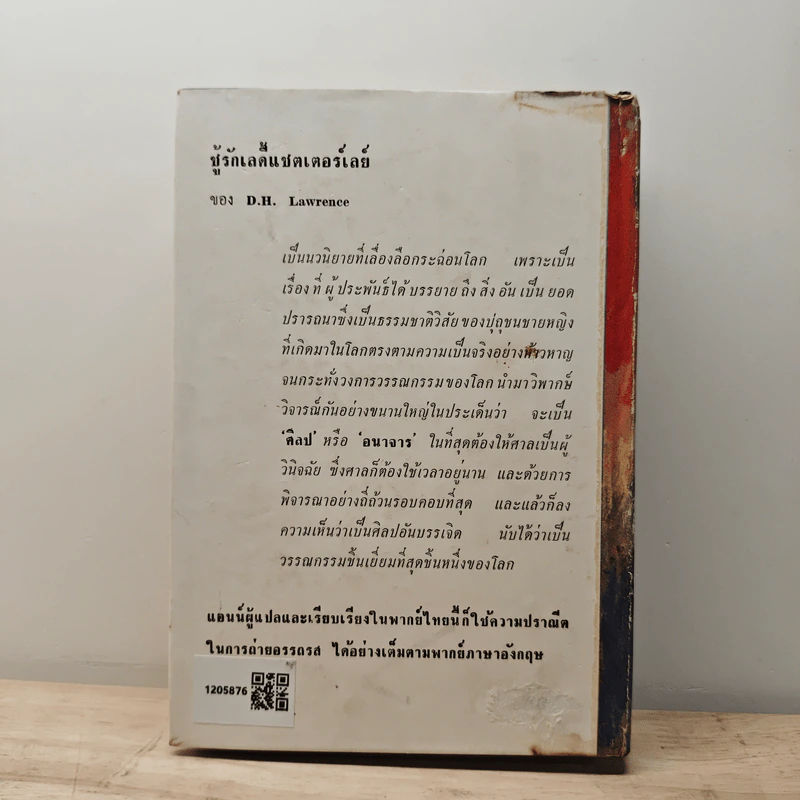 ชู้รักเลดี้แชตเตอร์เลย์
ของ D.H. Lawrence
เป็นนวนิยายที่เลื่องลือกระฉ่อนโลก เพราะเป็น
เรื่อง ที่ ผู้ ประพันธ์ ได้ บรรยาย ถึง สิ่ง อัน เป็น ยอด
ปรารถนาซึ่งเป็นธรรมชาติวิสัย ของบุ่ถุชนชายหญิง
ที่เกิดมาในโลกตรงตามความเป็นจริงอย่างห้าวหาญ
จนกระทั่งวงการวรรณกรรมของโลก นำมาวิพากษ์
วิจารณ์กันอย่างขนานใหญ่ในประเด็นว่า จะเป็น
'ศิลป' หรือ 'อนาจาร' ในที่สุดต้องให้ศาลเป็นผู้
วินิจฉัย ซึ่งศาลก็ต้องใช้เวลาอยู่นาน และด้วยการ
พิจารณาอย่างถี่ถ้วนรอบคอบที่สุด และแล้วก็ลง
ความเห็นว่าเป็นศิลปอันบรรเจิด นับได้ว่าเป็น
วรรณกรรมชิ้นเยี่ยมที่สุดชิ้นหนึ่งของโลก
แอนน์ผู้แปลและเรียบเรียงในพากย์ไทยนี้ก็ใช้ความปราณีต
ในการถ่ายอรรถรส ได้อย่างเต็มตามพากย์ภาษาอังกฤษ
1205876